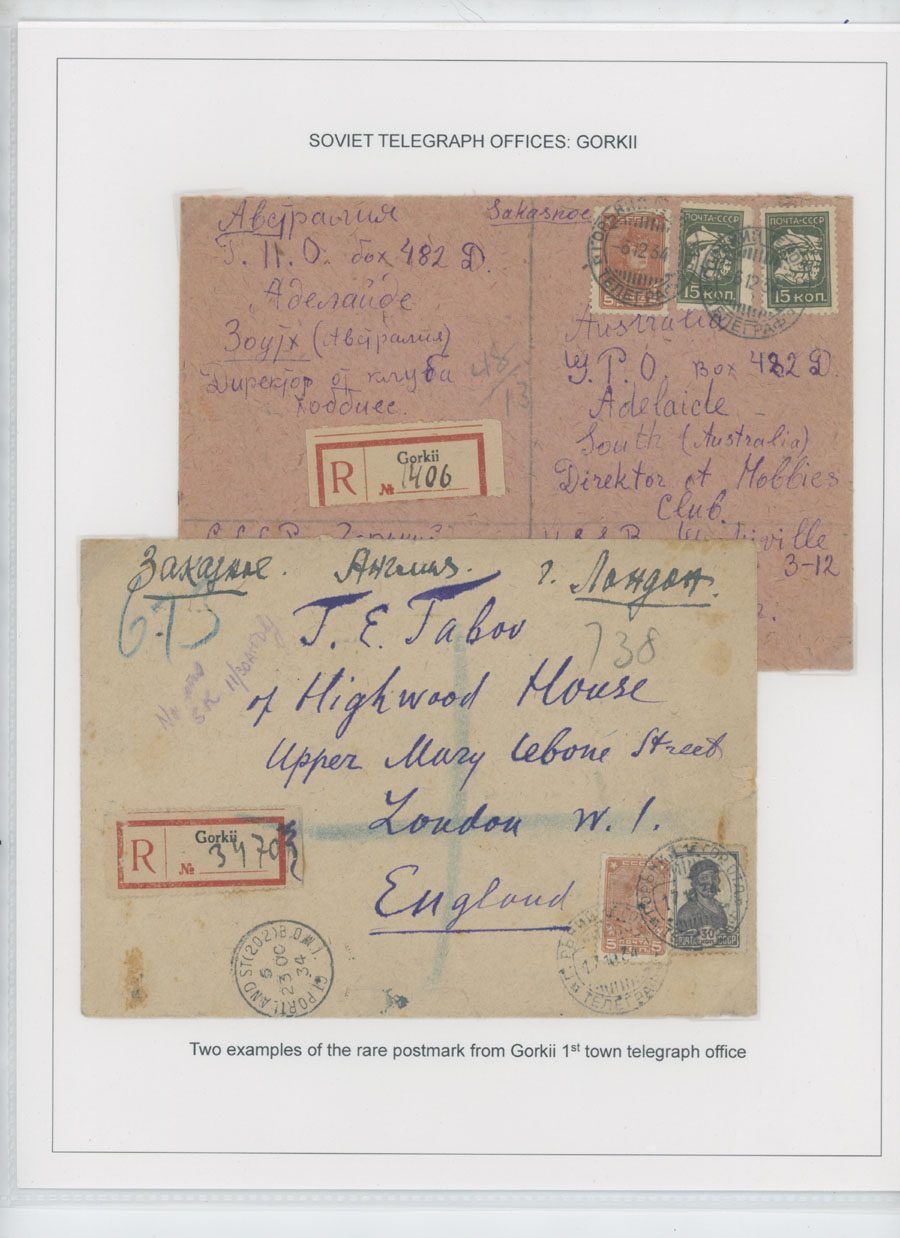 SOVIET TELEGRAPH OFFICES: GORKII
Австралия
Г. П. О. бох 482 Д.
Аделайде
Зоутх (Австралия)
Директор от клуба
хоббиес.
Sakasnoe
-6 12 34
ТЕЛЕГРАФ
ПОЧТА-СССР
15 КОП.
ПОЧТА-СССР
15 КОП.
ТЕЛЕГРАФ
Australia
G. P. O. Box 482 D.
Adelaide
South (Australia)
Direktor ot Hobbies
Club.
3-12
R
Gorkii
№ 1406
Заказное. Англия. г. Лондон.
673
738
T. E. Tabov
of Highwood House
Upper Mary lebone Street
London W. 1.
England
R
Gorkii
№ 3470
GT. PORTLAND ST (202) B.O. W.1.
5
23 OC
34
5
ПОЧТА
5
30
ТЕЛЕГРАФ
Two examples of the rare postmark from Gorkii 1st town telegraph office